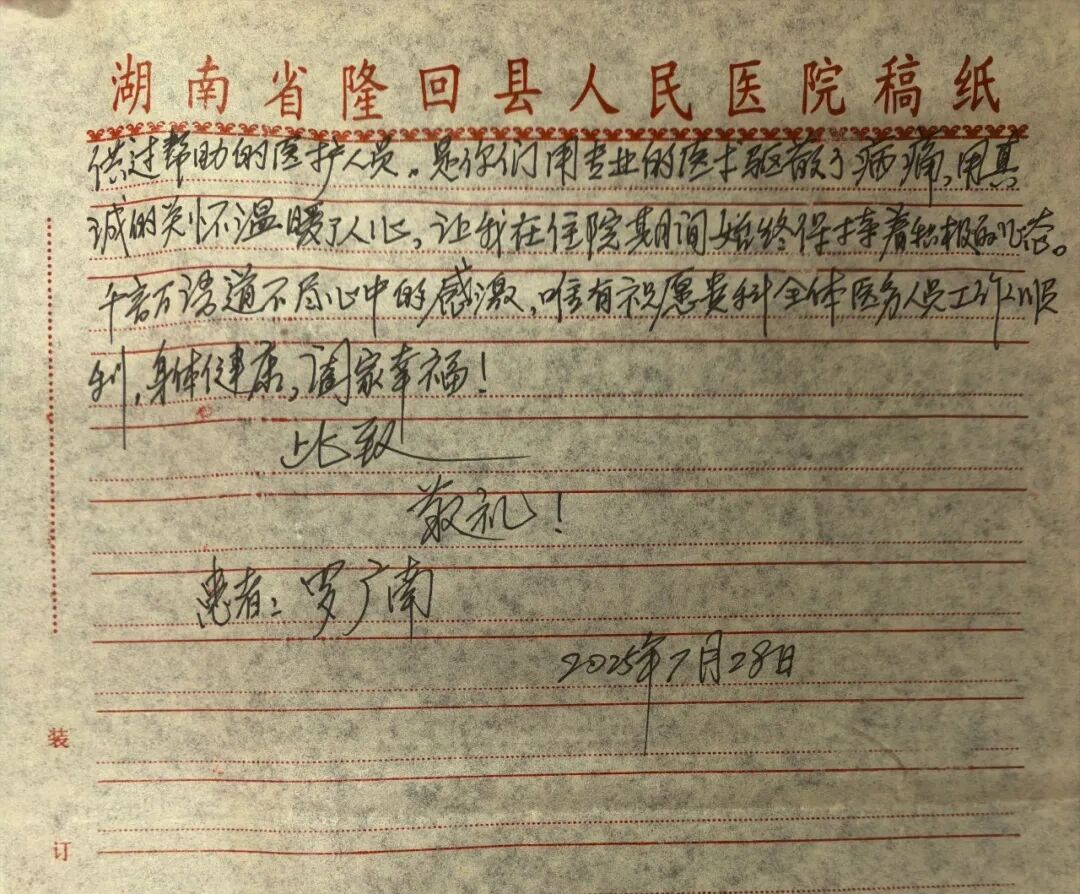 湖南省隆回县人民医院稿纸
供过帮助的医护人员。是你们用专业的医术驱散了病痛,用真
诚的关怀温暖了人心,让我在住院期间始终保持着积极的心态。
千言万语道不尽心中的感激,唯有祝愿贵科全体医务人员工作顺
利,身体健康,阖家幸福!
此致
敬礼!
患者:罗广南
2025年7月28日
装
订